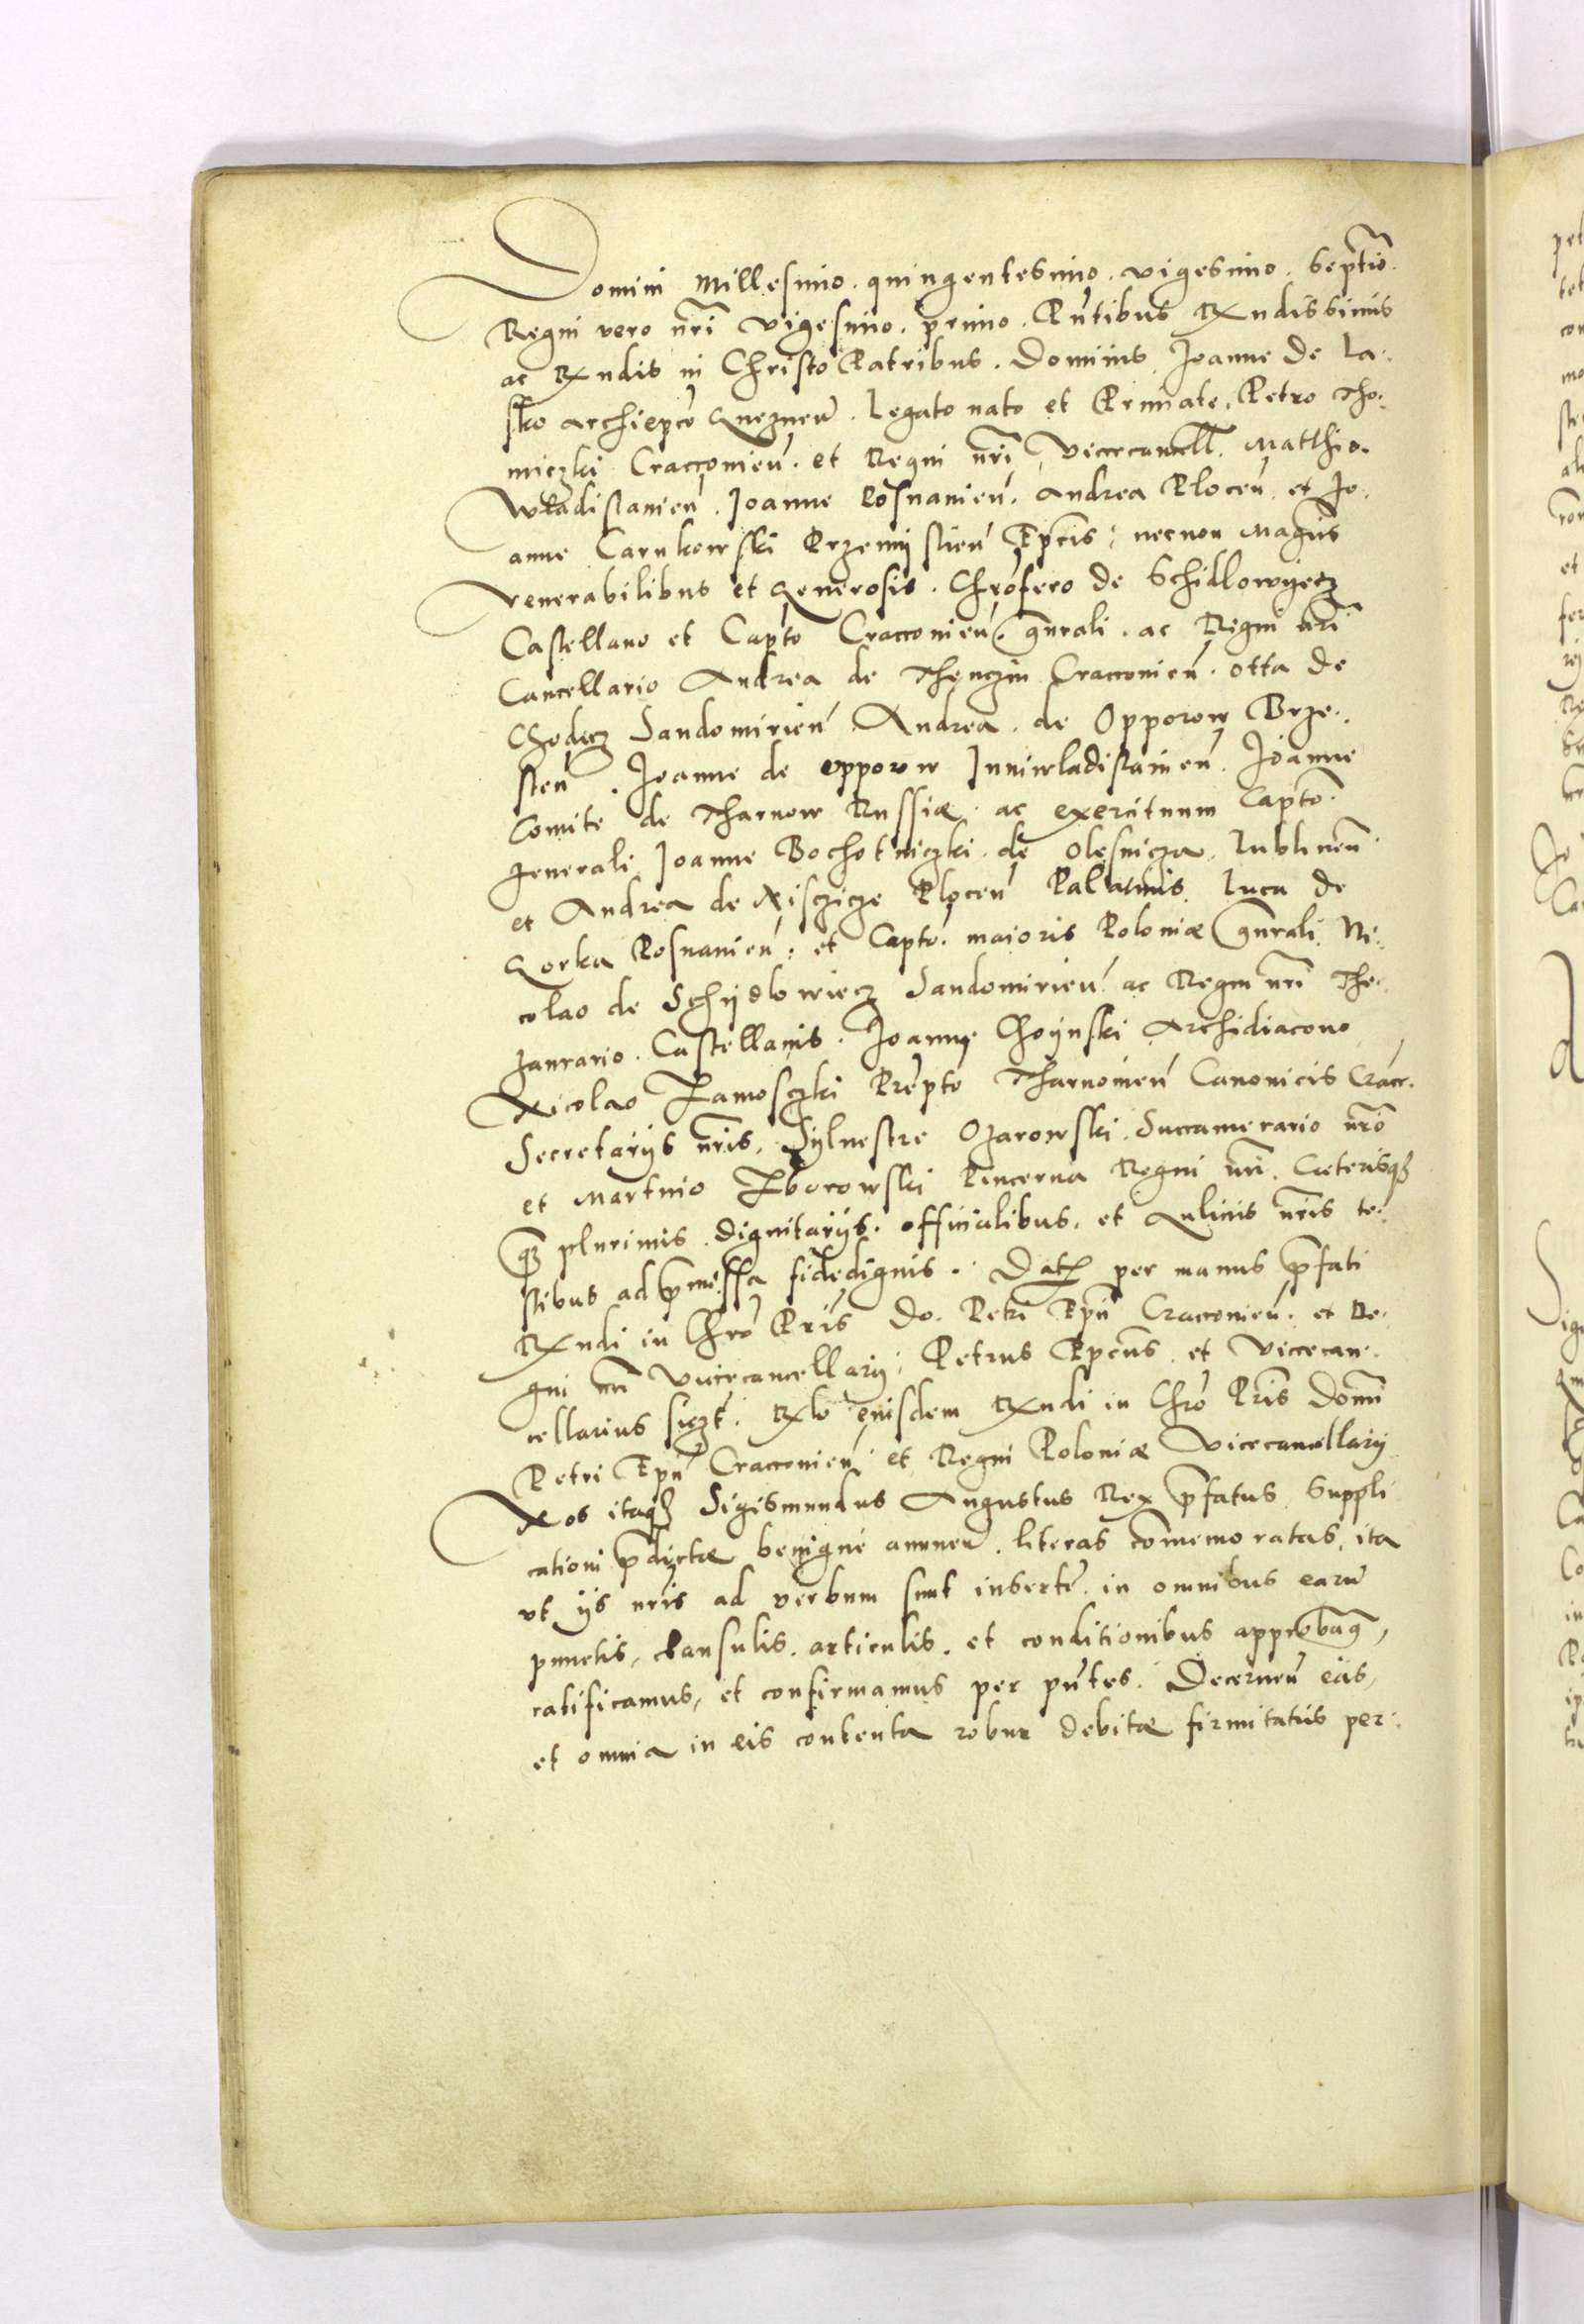 Domini Millesimo. quingentesimo. vigesimo. Septĩo.
Regni vero nr̃i vigesimo. primo. Pñtibus Rx̃ndissimis
ac Rx̃ndis in Christo Patribus. Dominis Joanne de La-
sko Archiepc̃o Gneznẽn. Legato nato et Primate, Petro Tho-
miczki Cracouień. et Regni nr̃i Vicecancell. Matthia.
Wladislauień. Joanne Posnanień. Andrea Plocẽn et Jo-
anne Carnkowski Przemyslień Epc̃is, necnon Magc̃is
Venerabilibus et Generosis. Chrõfero de Schidlowyecz
Castellano et Capto Cracouień. gñrali. ac Regni nr̃i
Cancellario Andrea de Thęnczin Cracouień. Otta de
Chodecz Sandomirień Andrea. de Opporow Brze-
sten̄. Joanne de Opporow Juniwladislauień. Joanne
Comite de Tharnow Russiæ. ac exercituum Capto
generali Joanne Bochotniczki. de Olesnicza. Lublinen̄
et Andrea de Nisczicze Plocen̄ Palatinis. Luca de
Gorka Posnanień. et Capto. maioris Poloniæ gñrali Ni-
colao de Schydlowiecz Sandomirień ac Regni nr̃i The-
zaurario. Castellanis. Joanne Choynski Archidiacono
Nicolao Zamosczki Præpto Tharnouień Canonicis Crac.
Secretarijs nr̃is, Syluestre Ozarowski. Succamerario nr̃o
et Martino Zborowski Pincerna Regni nr̃i. Cæterisq3
q3 plurimis. dignitarijs. officialibus. et Aulicis nr̃is te-
stibus ad p̃missa fidedignis. Dat. per manus p̃fati
Rx̃ndi in Chrõ Pr̃is Do. Petri Epĩ Cracouień. et Re-
gni nr̃i Vicecancellarij. Petrus Epc̃us. et Vicecan-
cellarius sszt. Rx̃lo eiusdem Rx̃ndi in Chrõ Pr̃is Domĩ
Petri Epĩ Cracouień et Regni Poloniæ Vicecancellarij
Nos itaq3 Sigismundus Augustus Rex p̃fatus suppli
cationi p̃dictæ benigne annueñ. literas cõmemoratas, ita
vt ijs nr̃is ad verbum sunt insertæ. in omnibus earũ
punctis, clausulis. articulis. et conditionibus approbaq̃,
ratificamus, et confirmamus per pñtes. Decerneñ eas,
et omnia in eis contenta robur debitæ firmitatis per-